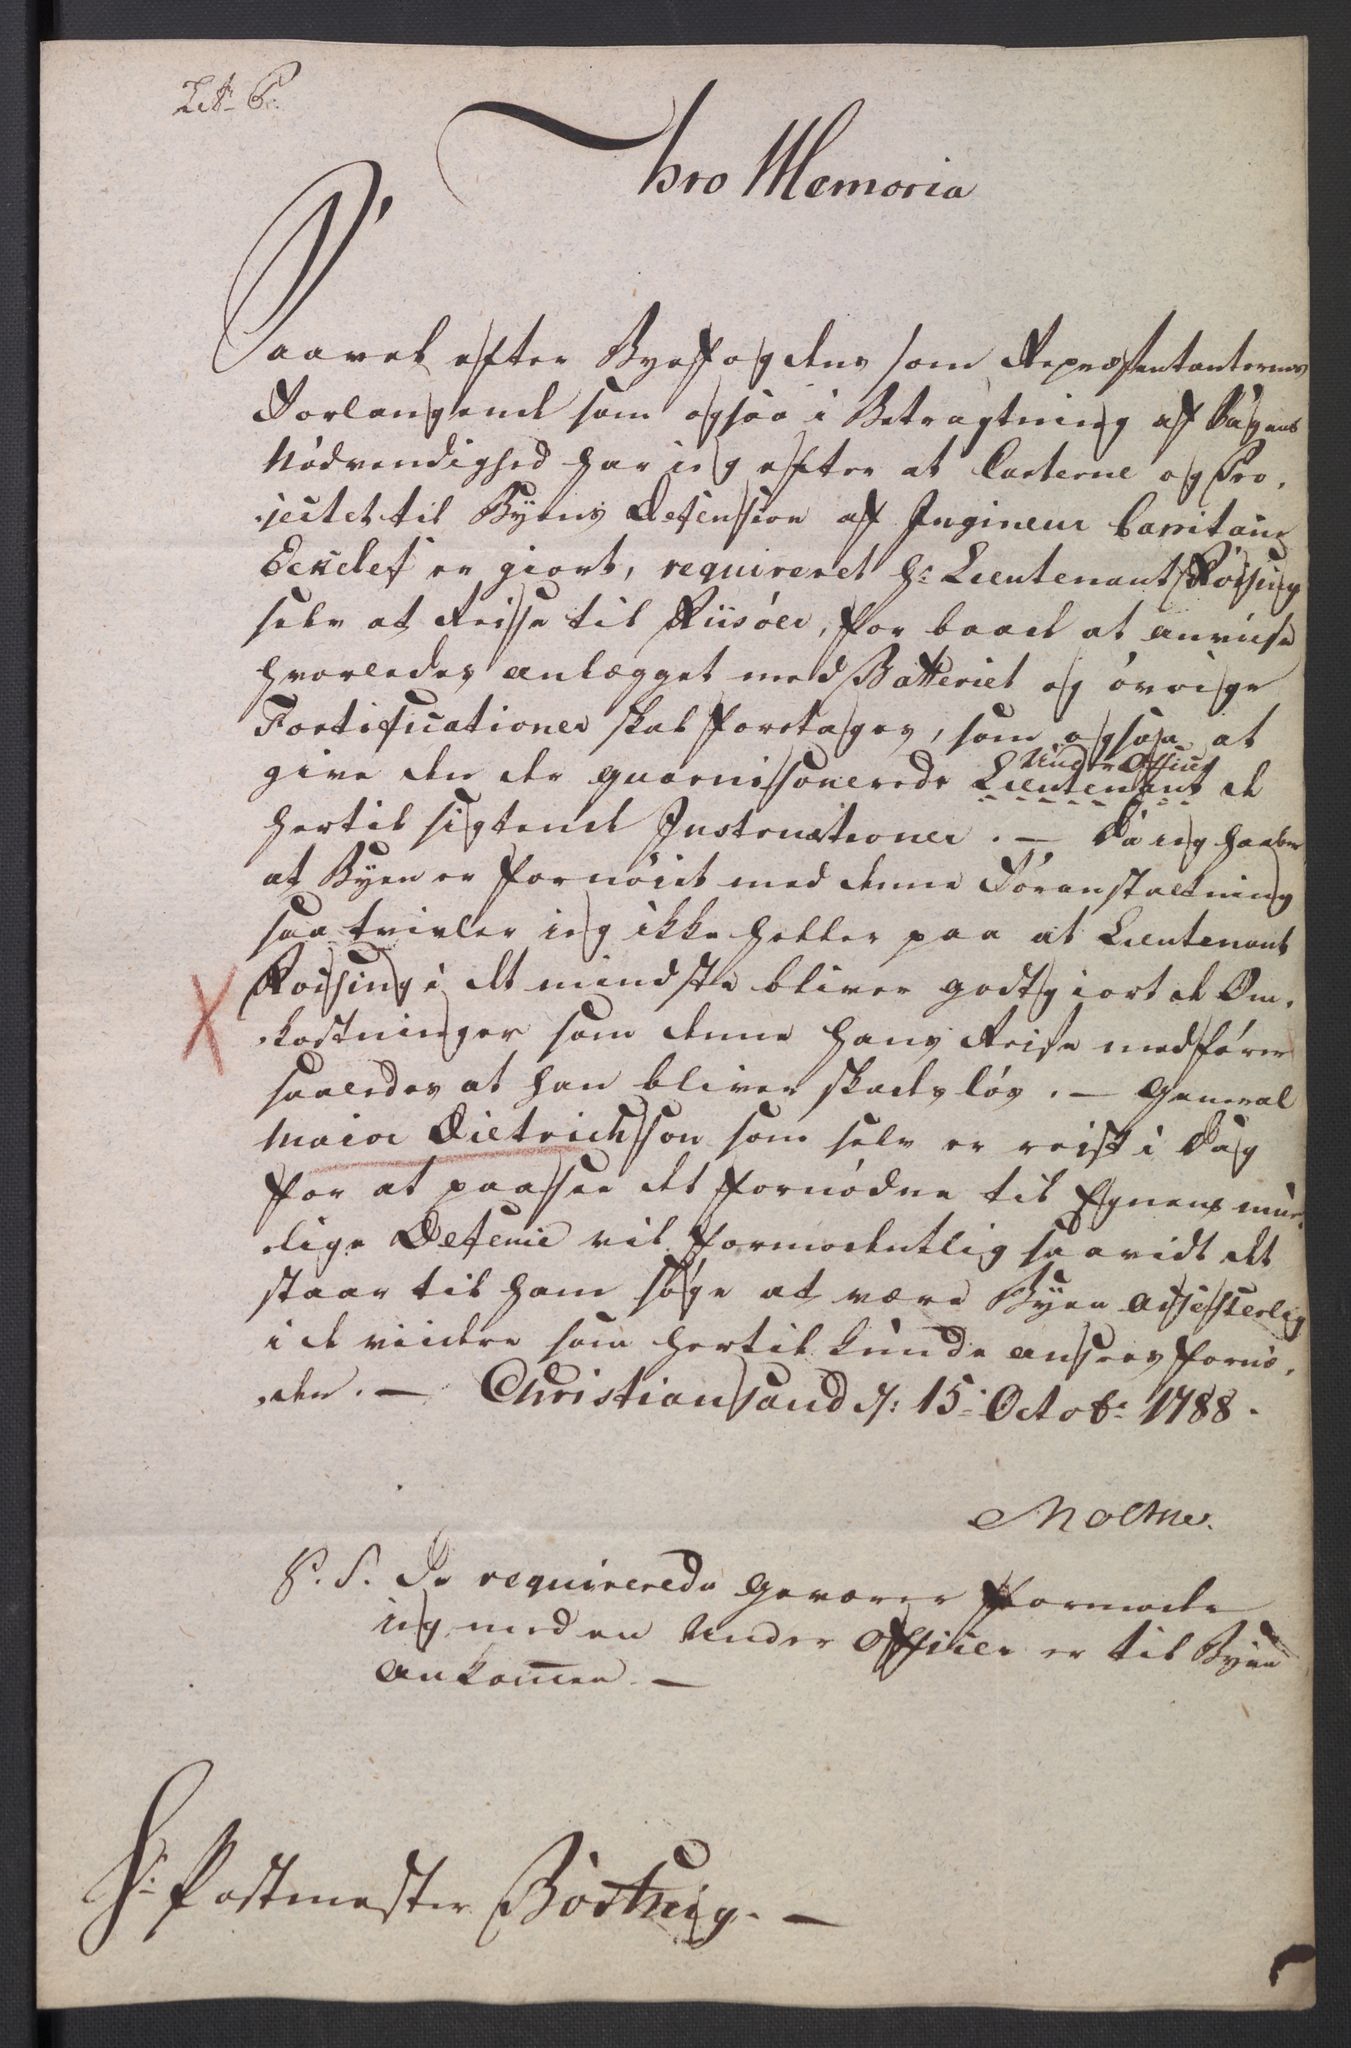 Lit: C.
Pro Memoria
Saavel efter Byefogdens som Repræsentanternes
Forlangende som ogsaa i Betragtning af Sagens
Nödvendighed har ieg efter at Carterne og Pro-
jectet til Byens Defension af Ingineur Capitain
Eckelef er giort, requireret Hr. Lieutenant Röising
selv at Reise til Riisöer, for baade at anviise
hvorledes anlægget med Batteriet og övrige
Fortificationer skal foretages, som ogsaa at
give den der guarnisonerede Lieutenant de
Under Officier
hertil sigtende Instructioner. — Da ieg haaber
at Byen er fornöiet med denne Foranstaltning
saa tvivler ieg ikke heller paa at Lieutenant
Röising i det mindste bliver godtgiort de Om-
kostninger som denne hans Reise medförer
saaledes at han bliver skadeslös. — General
Maior Dietrichson som selv er reist i Dag
for at paasee det fornödne til Egnens mue-
lige Defence vil formodentlig saavidt det
staar til ham söge at være Byen
i de viidere som hertil kunde ansees fornö-
den. — Christiansand d: 15 Octobr 1788.
Moltke.
P. S. De requirerede Geværer formoder
ieg med en Under Officier er til Byen
ankommen. —
Hr. Postmester Börting. —